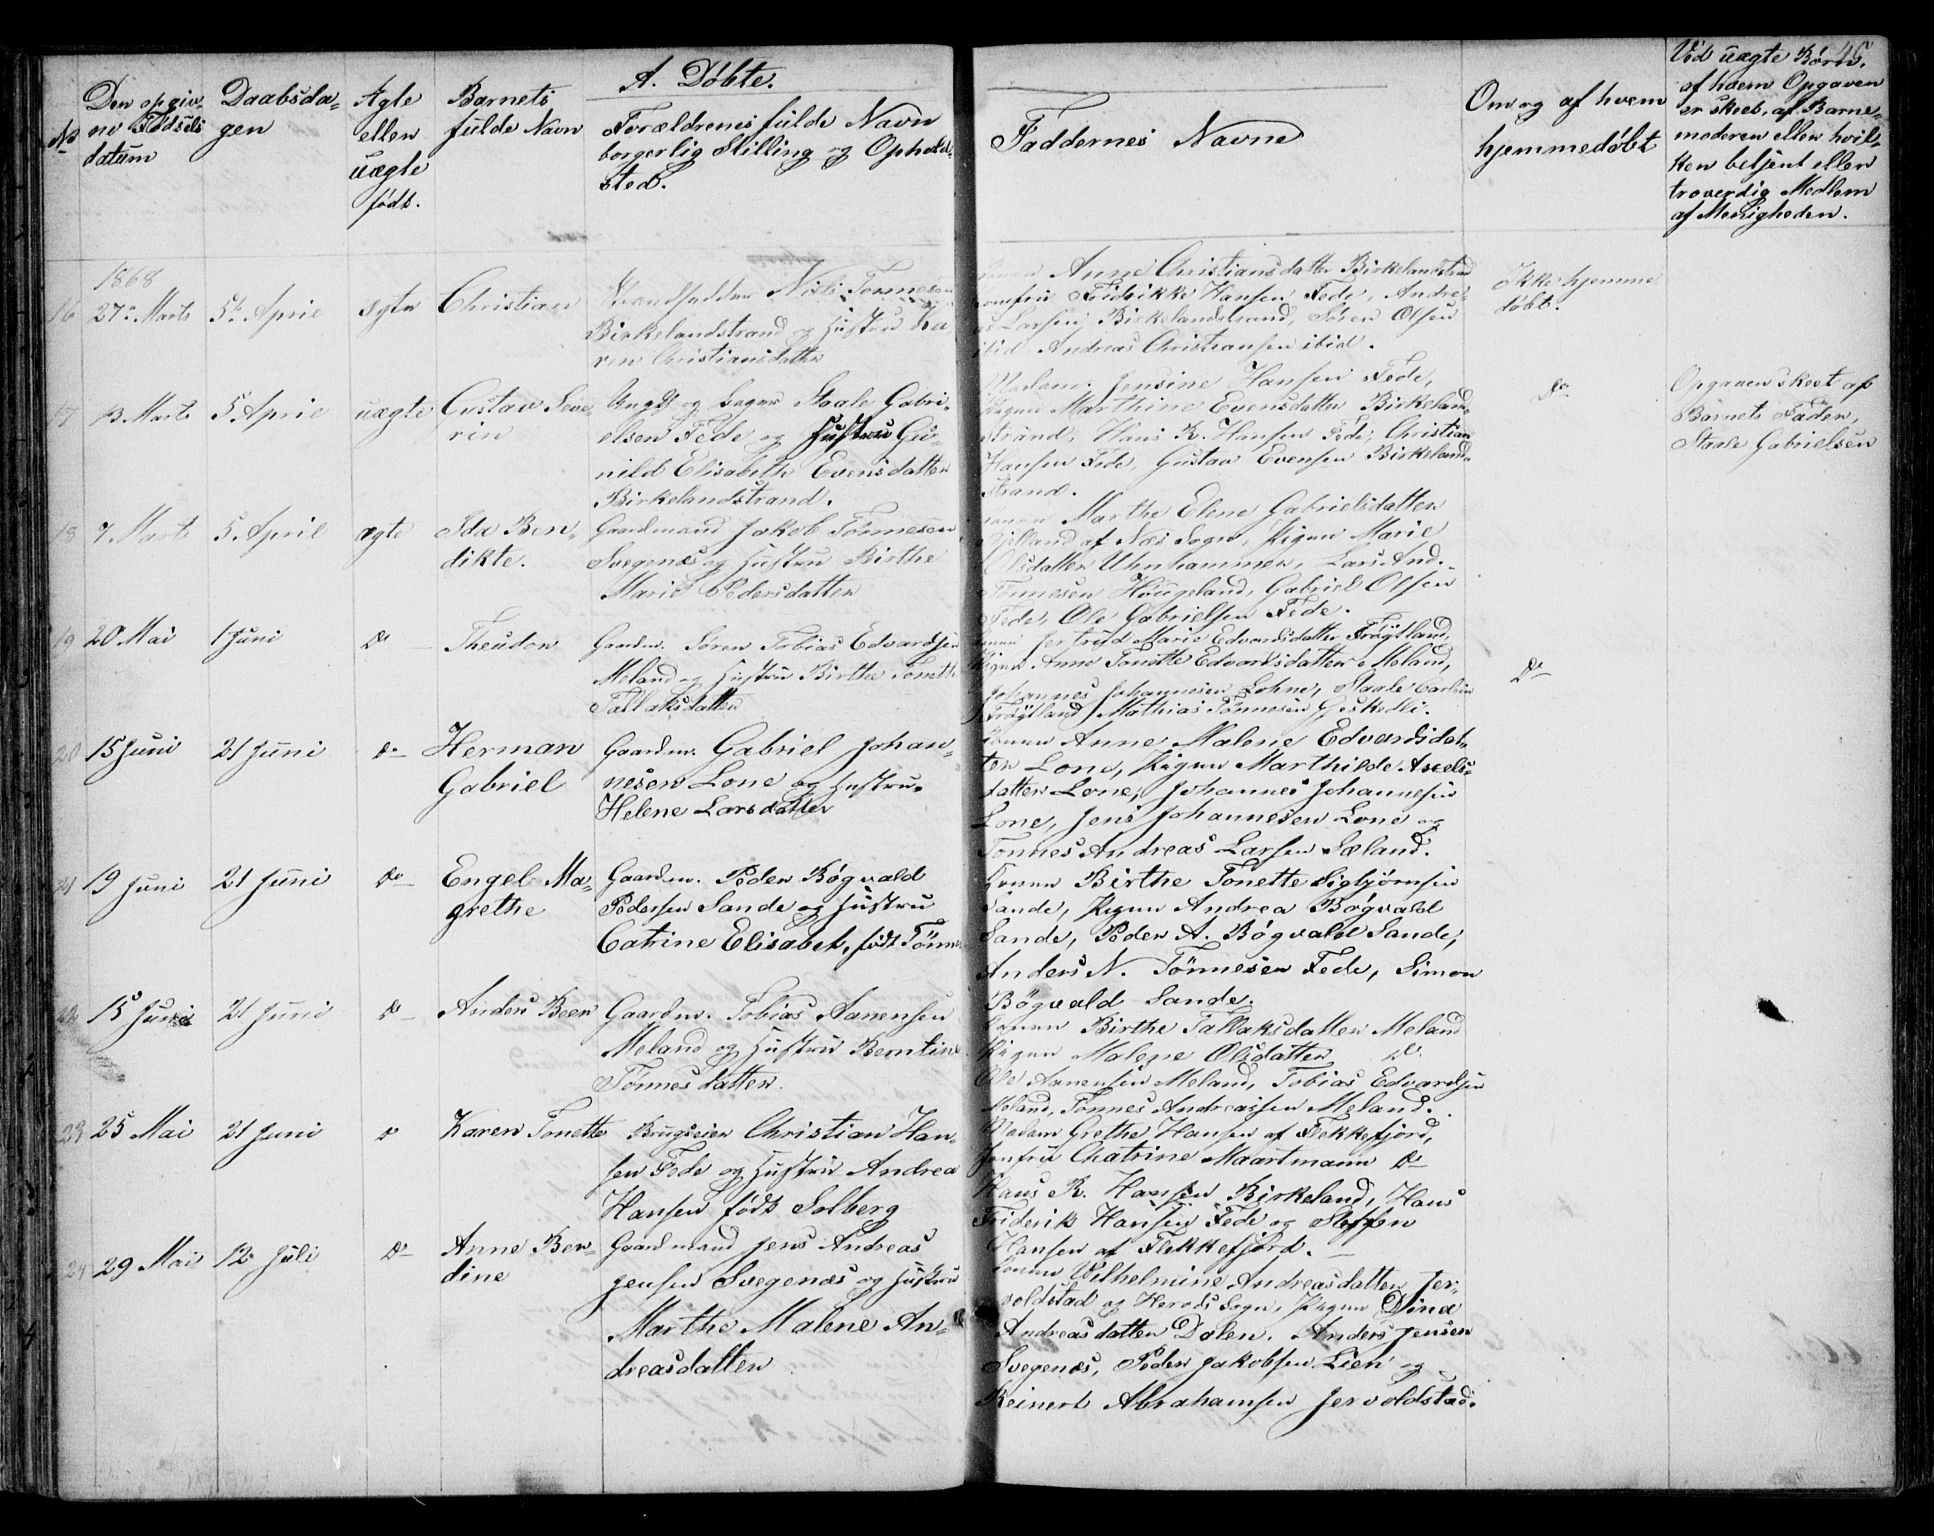 A. Døbte.
46
No
Den opgiv-
ne Fødsels
datum
Daabsda-
gen
Ægte
eller
uægte
født.
Barnets
fulde Navn
Forældrenes fulde Navn
borgerlig Stilling og Opholds-
sted.
Faddernes Navne
Om og af hvem
hjemmedøbt
Ved uægte Børn,
af hvem Opgaven
er skeet, af Barne-
moderen eller hvil-
ken betjent eller
troverdig Medlem
af Menigheden.
1868
16 27de Marts 5te April ægte Christian
Strandsidder Niels Tønnesen
Birkelandstrand og Hustru Ka
ren Christiansdatter
Anne Christiansdatter Birkelandstrand
Jomfru Fredrikke Hansen Fede, Andre-
as Larsen Birkelandstrand, Søren Olsen
ibid Andreas Christiansen ibid.
Ikke hjemme
døbt.
17 13 Marts 5 April uægte Gustav Seve-
rin
Ungk og Staale Gabri-
elsen Fede og Hustru Gu-
nild Elisabeth Evensdatter
Birkelandstrand.
Madam. Jensine Hansen Fede,
Pigen Marthine Evensdatter Birkeland-
strand, Hans R. Hansen Fede, Christian
Hansen Fede, Gustav Evensen Birkeland-
strand.
Do
Opgaven skeet af
Barnets Fader,
Staale Gabrielsen
18 7 Marts 5 April ægte Ida Ben-
dikte.
Gaardmand Jakob Tønnesen
Svegenæs og Hustru Birthe
Marie Pedersdatter
Konen Marthe Elene Gabrielsdatter
af Næs Sogn, Pigen Marie
Olsdatter Uhnhammer, Lars And.
Tønnesen Høugeland, Gabriel Olsen
Fede, Ole Gabrielsen Fede.
19 20 Mai 1 Juni Do Theodor
Gaardm. Søren Tobias Edvardsen
Meland og Hustru Birthe Tonette
Tallaksdatter
Konen Jertrud Marie Edvardsdatter Frøytland,
Pigen Anne Tonette Edvardsdatter Meland,
Johannes Johannesen Lohne, Staale Carlsen
Frøytland Mathias Tønnesen Geskedli.
Do
20 15 Juni 21 Juni Do Herman
Gabriel
Gaardm. Gabriel Johan-
nesen Lone og Hustru
Helene Larsdatter
Konen Anne Malene Edvardsdat-
ter Lone, Pigen Marthilde Axels-
datter Lone, Johannes Johannesen
Lone, Jens Johannesen Lone og
Tønnes Andreas Larsen Sæland.
21 19 Juni 21 Juni Do Engel Ma-
grethe
Gaardm. Peder Bøgvald
Pedersen Sande og Hustru
Catrine Elisabet, født Tønnes
Konen Birthe Tonette Sigbjørnsen
Sande, Pigen Andrea Bøgvald
Sande, Peder A. Bøgvald Sande,
Anders N. Tönnesen Fede, Simon
Bøgvald Sande.
22 15 Juni 21 Juni Do Anders Beer
Gaardm. Tobias Aanensen
Meland og Hustru Berntine
Tönnesdatter.
Konen Birthe Tallaksdatter Meland
Pigen Malene Olsdatter Do
Ole Aanensen Meland, Tobias Edvardsen
Meland, Tønnes Andreassen Meland.
23 25 Mai 21 Juni Do Karen Tonette
Brugseier Christian Han-
sen Fede og Hustru Andrea
Hansen født Solberg
Madam Grethe Hansen af Flekkefjord,
Jomfru Chatrine Maartmann Do
Hans R. Hansen Birkeland, Hans
Friderik Hansen Fede og Steffen
Hansen af Flekkefjord.
24 29 Mai 12 Juli Do Anne Ber-
dine
Gaardmand Jens Andreas
Jensen Svegenæs og Hustru
Marthe Malene An-
dreasdatter
Konen Wilhelmine Andreasdatter Jer-
voldstad og Herads Sogn, Pigen Dina
Andreasdatter Dalen. Anders Jensen
Svegenæs, Peder Jakobsen Lien og
Reinert Abrahamsen Jervoldstad.